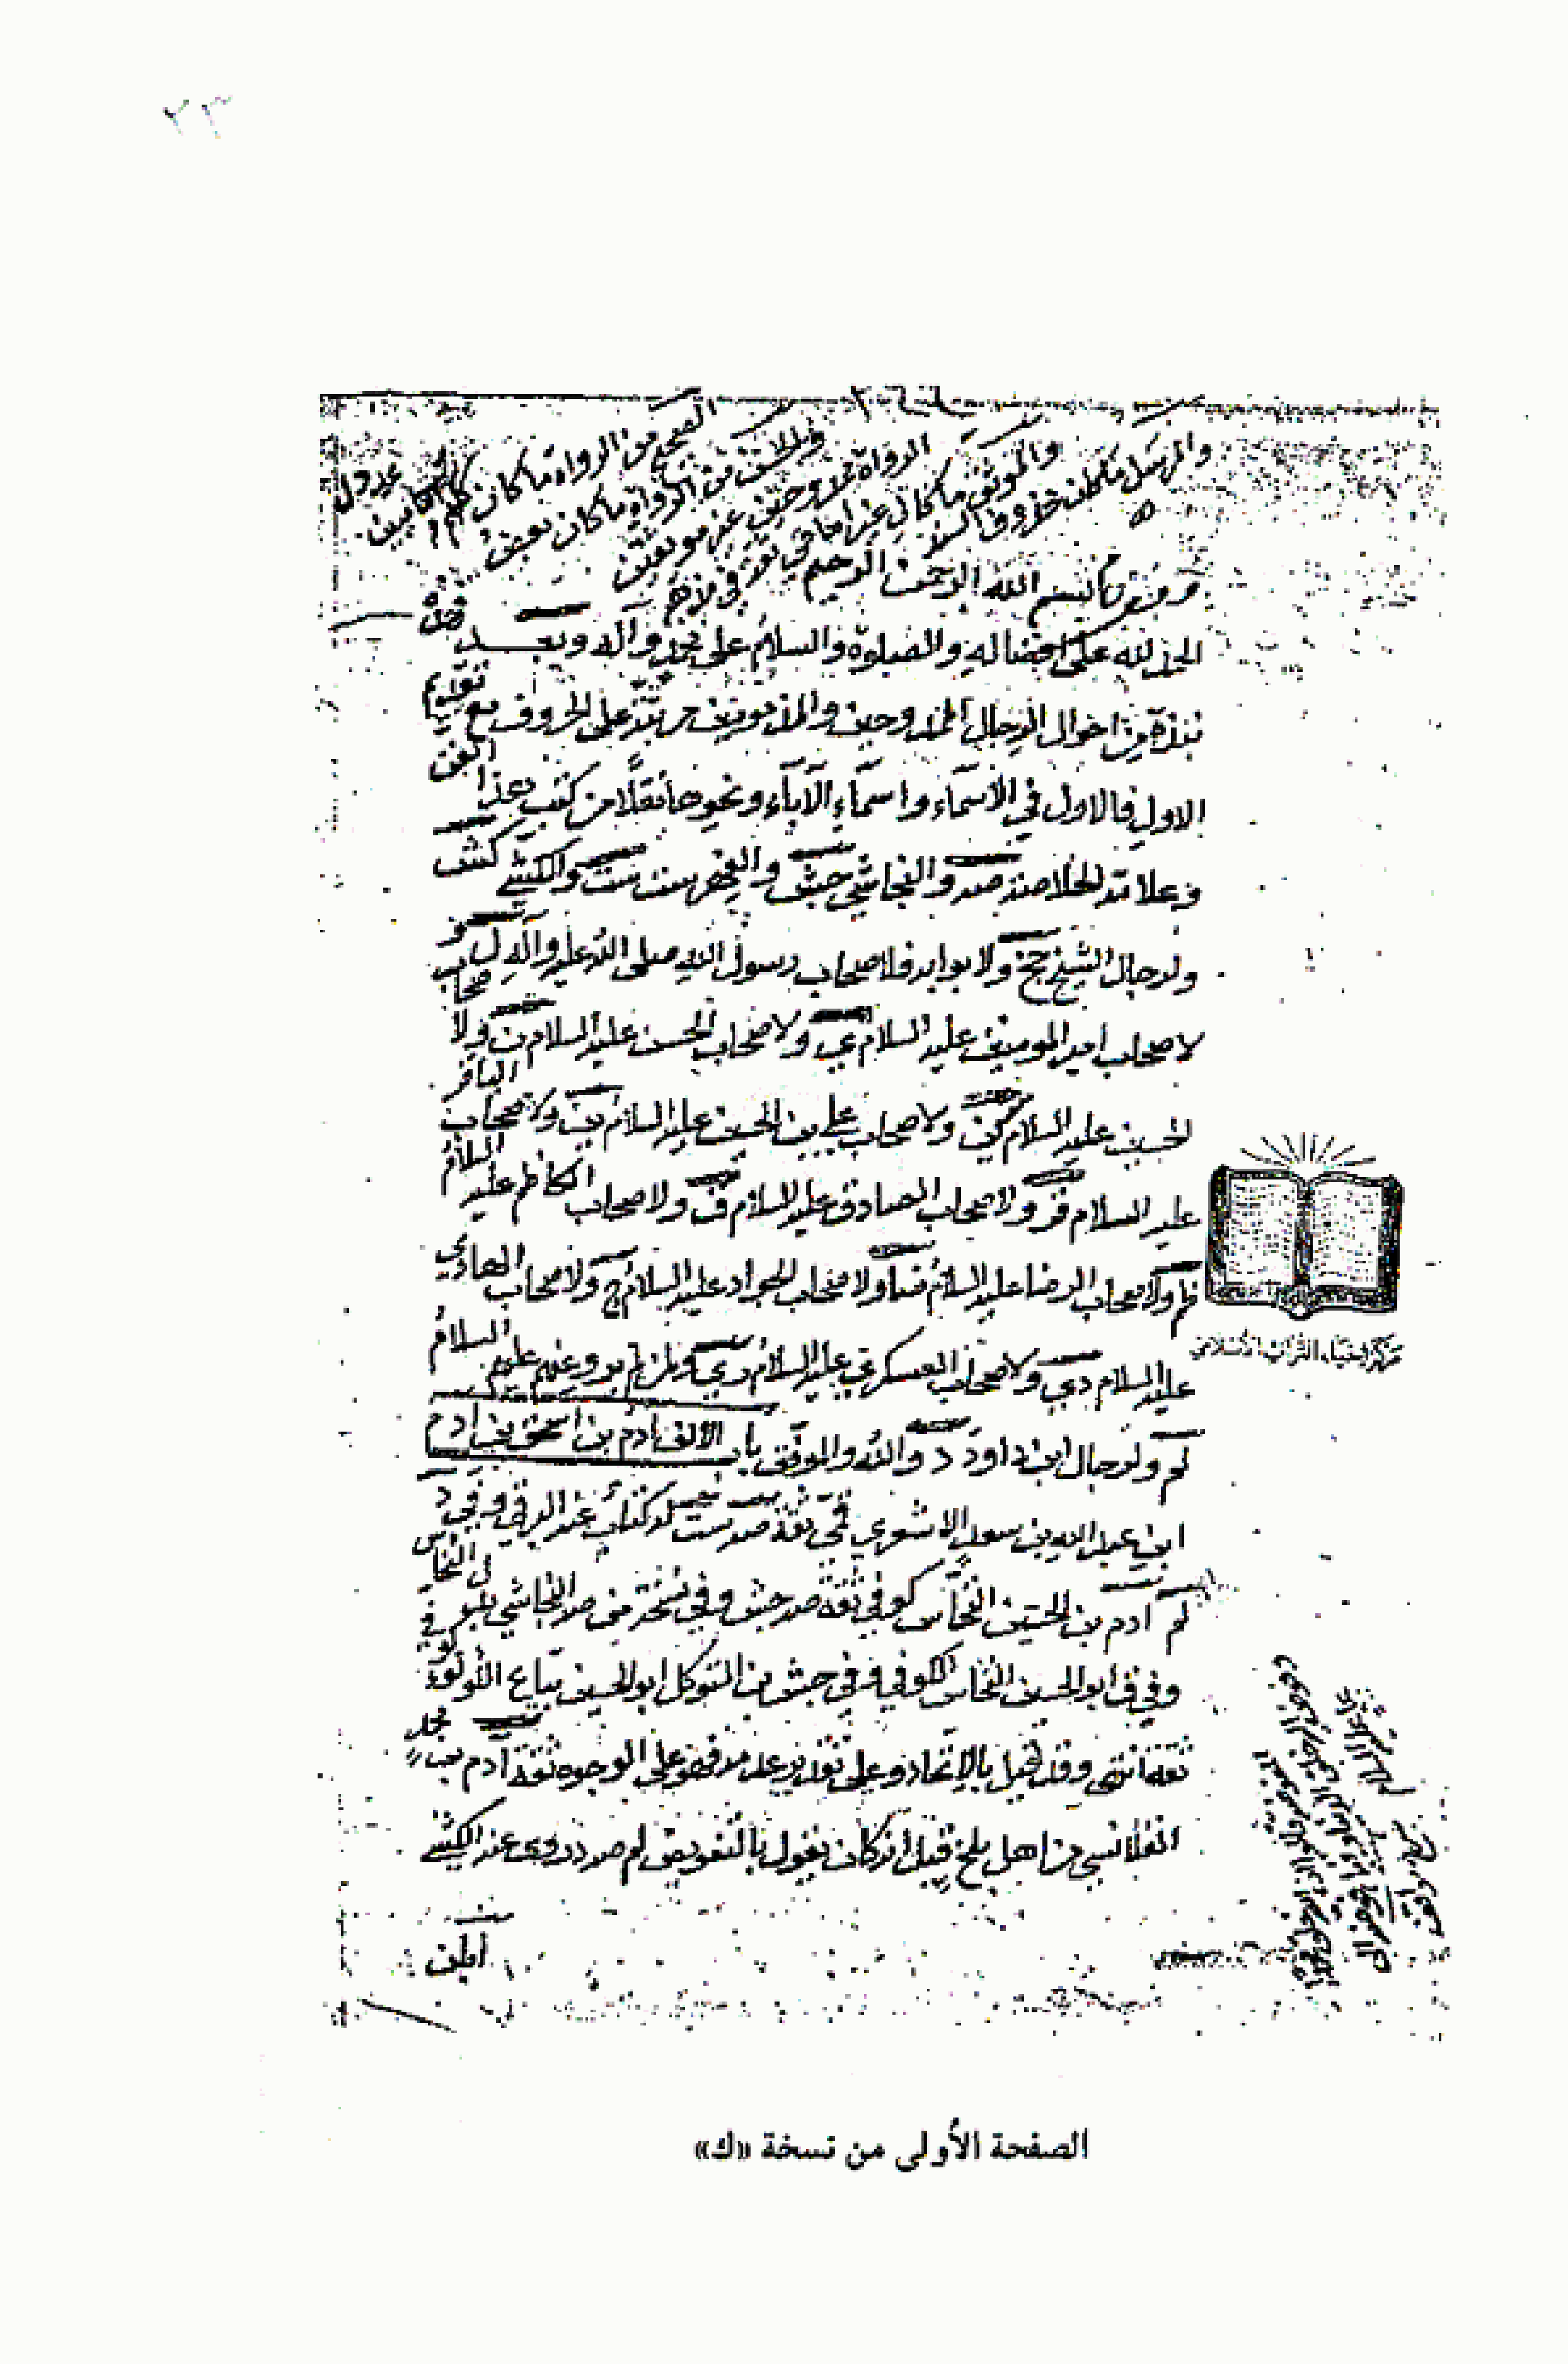 ٢٣
الصحيح من الرواة ما كان كلهم اماميين عدول
والحسن من الرواة ما كان بعض
الرواة ممدوحين غير موثقين
والموثق ما كان غير امامي ثقة في مذهبه
والمرسل ما كان محذوف السند
بسم الله الرحمن الرحيم
الحمد لله على افضاله والصلوة والسلام على محمد وآله وبعد فهذه
نبذة من احوال الرجال الممدوحين والمذمومين مرتبة على الحروف مع تقديم
الاول فالاول في الأسماء واسماء الآباء ونحوها نقلا من كتب هذا الفن
وعلامة الخلاصة صه والنجاشي جش والفهرست ست والكشي كش
ولرجال الشيخ جخ ولابوابه فاصحاب رسول الله صلى الله عليه واله ل و
لاصحاب امير المومنين عليه السلام ي ولاصحاب الحسن عليه السلام ن ولاصحاب
الحسين عليه السلام سين ولاصحاب علي بن الحسين عليه السلام ين ولاصحاب الباقر
عليه السلام قر ولاصحاب الصادق عليه السلام ق ولاصحاب الكاظم عليه السلام
ظم ولاصحاب الرضا عليه السلام ضا ولاصحاب الجواد عليه السلام ج ولاصحاب الهادي
عليه السلام دي ولاصحاب العسكري عليه السلام ري ولمن لم يرو عنهم عليهم السلام
لم ولرجال ابن داود د والله والموفق باب الالف ادم بن اسحق بن ادم
ابن عبد الله بن سعد الاشعري قمي ثقة صه ست له كتاب عنه البرقي وفي د
لم آدم بن الحسين النخاس كوفي ثقة صه جش وفي نسخة من صه النجاشي بدل النخاس
وفي ق ابو الحسين النخاس الكوفي وفي جش بن المتوكل ابو الحسين بياع اللؤلؤ كوفي
ثقة انتهى وقد تخيل بالاتحاد وعلى تقدير عدمه فهو على الوجوه ثقة آدم بن محمد
القلانسي من اهل بلخ قيل انه كان يقول بالتفويض لم صه د روى عنه الكشي
مركز إحياء التراث الإسلامي
الصفحة الأولى من نسخة «ك»